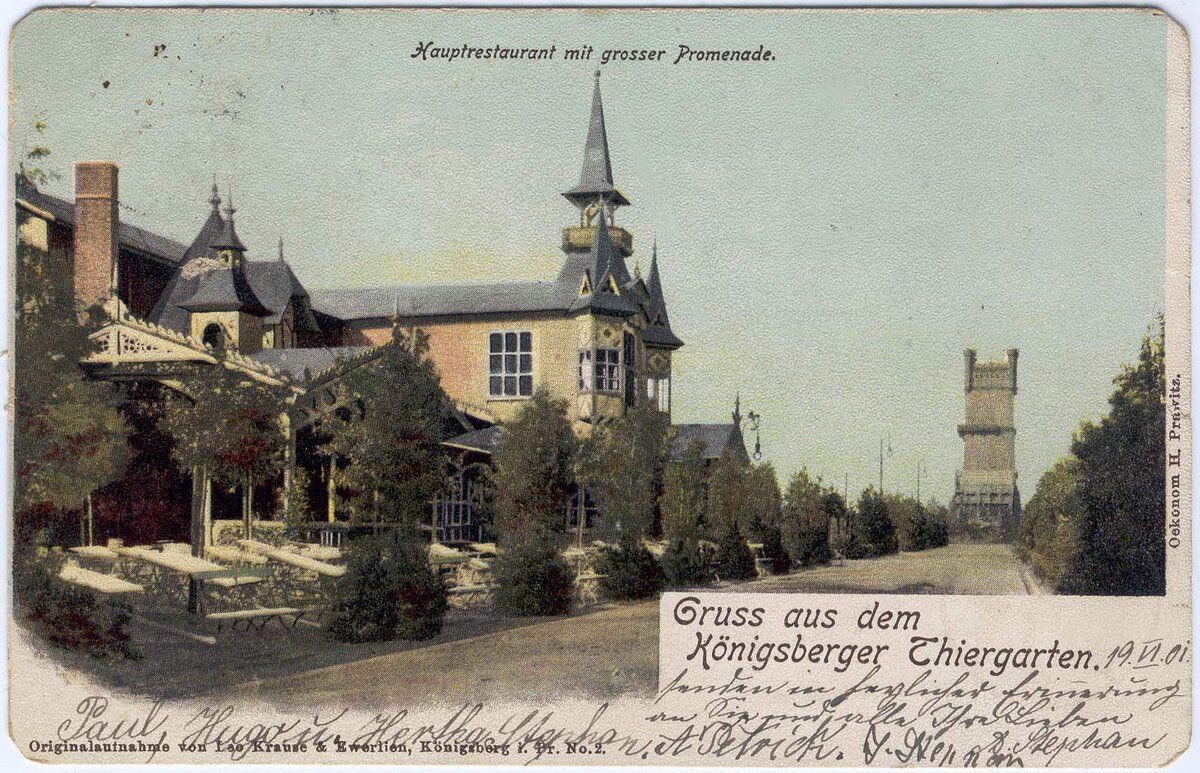 Hauptrestaurant mit grosser Promenade.
Oekonom H. Prawitz.
Gruss aus dem
Königsberger Thiergarten. 19.VI.01.
senden in herzlicher Erinnerung
an Sie und alle Ihre Lieben
Paul, Hugo u. Hertha Stephan, A. Petrick. Stephan
Originalaufnahme von Leo Krause & Ewerlien, Königsberg i. Pr. No. 2.